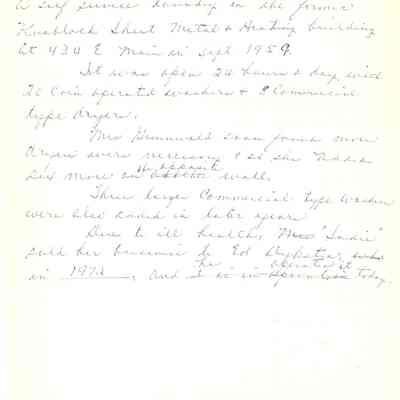 a self service laundry in the former
Knoblock Sheet Metal & Heating building
at 434 E. Main in Sept 1959.
It was open 24 hours a day, with
20 Coin operated washers & 8 Commercial
type dryers.
Mrs Grunwald soon found more
dryers were necessary & so she added
six more on the opposite wall.
Three larger Commercial type washers
were also added in later years.
Due to ill health, Mrs "Sadie"
sold her business to Ed who
in 1973, and he operates it today.